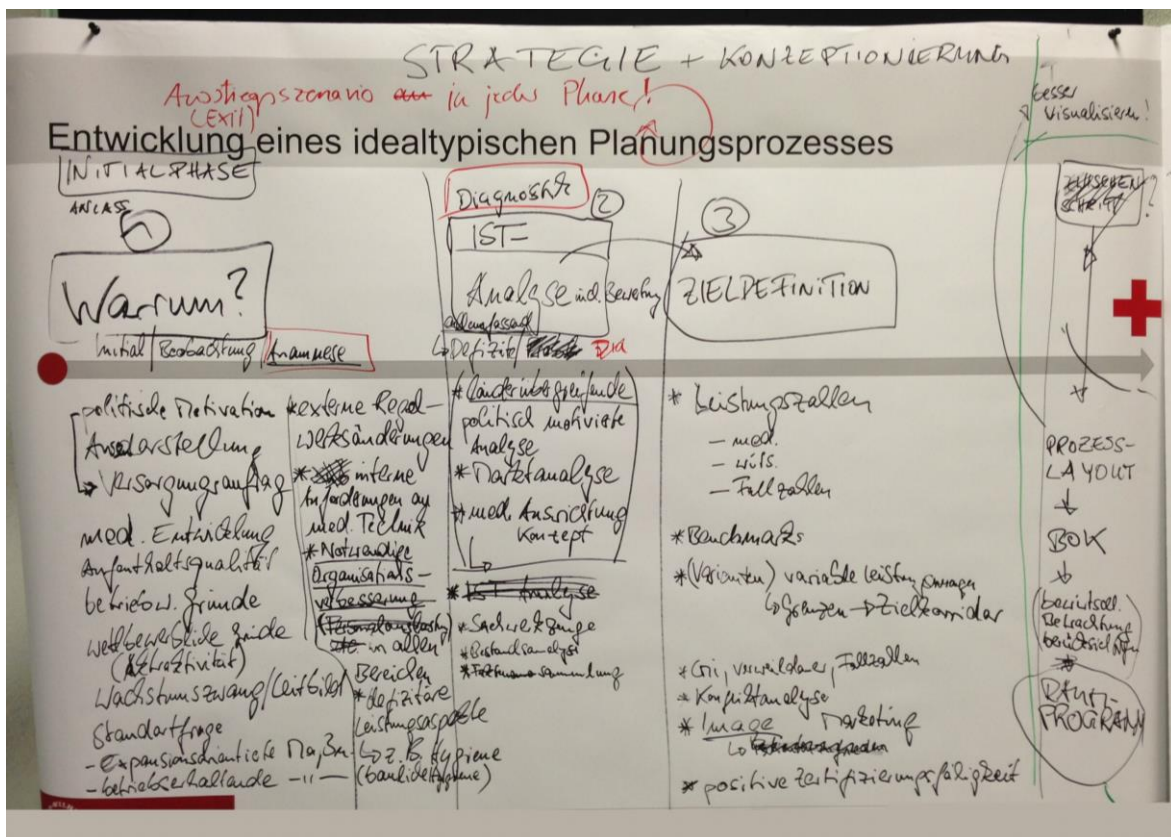 STRATEGIE + KONZEPTIONIERUNG
Ausstiegsszenario in jeder Phase!
(EXIT)
besser
visualisieren!
Entwicklung eines idealtypischen Planungsprozesses
INITIALPHASE
ANLASS
1
Warum?
Initial / Beobachtung / Anamnese
politische Motivation
Versorgungsauftrag
med. Entwicklung
Aufenthaltsqualität
betriebsw. Gründe
wettbewerbliche Gründe
(Attraktivität)
Wachstumszwang / Leitbild
Standortfrage
- betriebserhaltende -"-
* externe Regel-
werksänderungen
* interne
Anforderungen an
med. Technik
* Notwendige
Organisations-
verbesserung
in allen
Bereichen
* defizitäre
Leistungsaspekte
z.B. Hygiene
(bauliche Hygiene)
Diagnostik
2
IST-
Analyse incl. Bewertung
allumfassend
Defizite
* länderübergreifende
politisch motivierte
Analyse
* Marktanalyse
* med. Ausrichtung
Konzept
* IST Analyse
* Sachwerkzeuge
* Bestandsanalyse
3
ZIELDEFINITION
* Leistungszahlen
- med.
- wirts.
- Fallzahlen
* Benchmarks
* (Varianten) variable
Grenzen → Zielkorridor
* Cmi, verweildauer, Fallzahlen
* Konfliktanalyse
* Image Marketing
* positive Zertifizierungsfähigkeit
ZWISCHEN
SCHRITT
?
PROZESS-
LAYOUT
BOK
Betrachtung
berücksichtigen
RAUM-
PROGRAMM